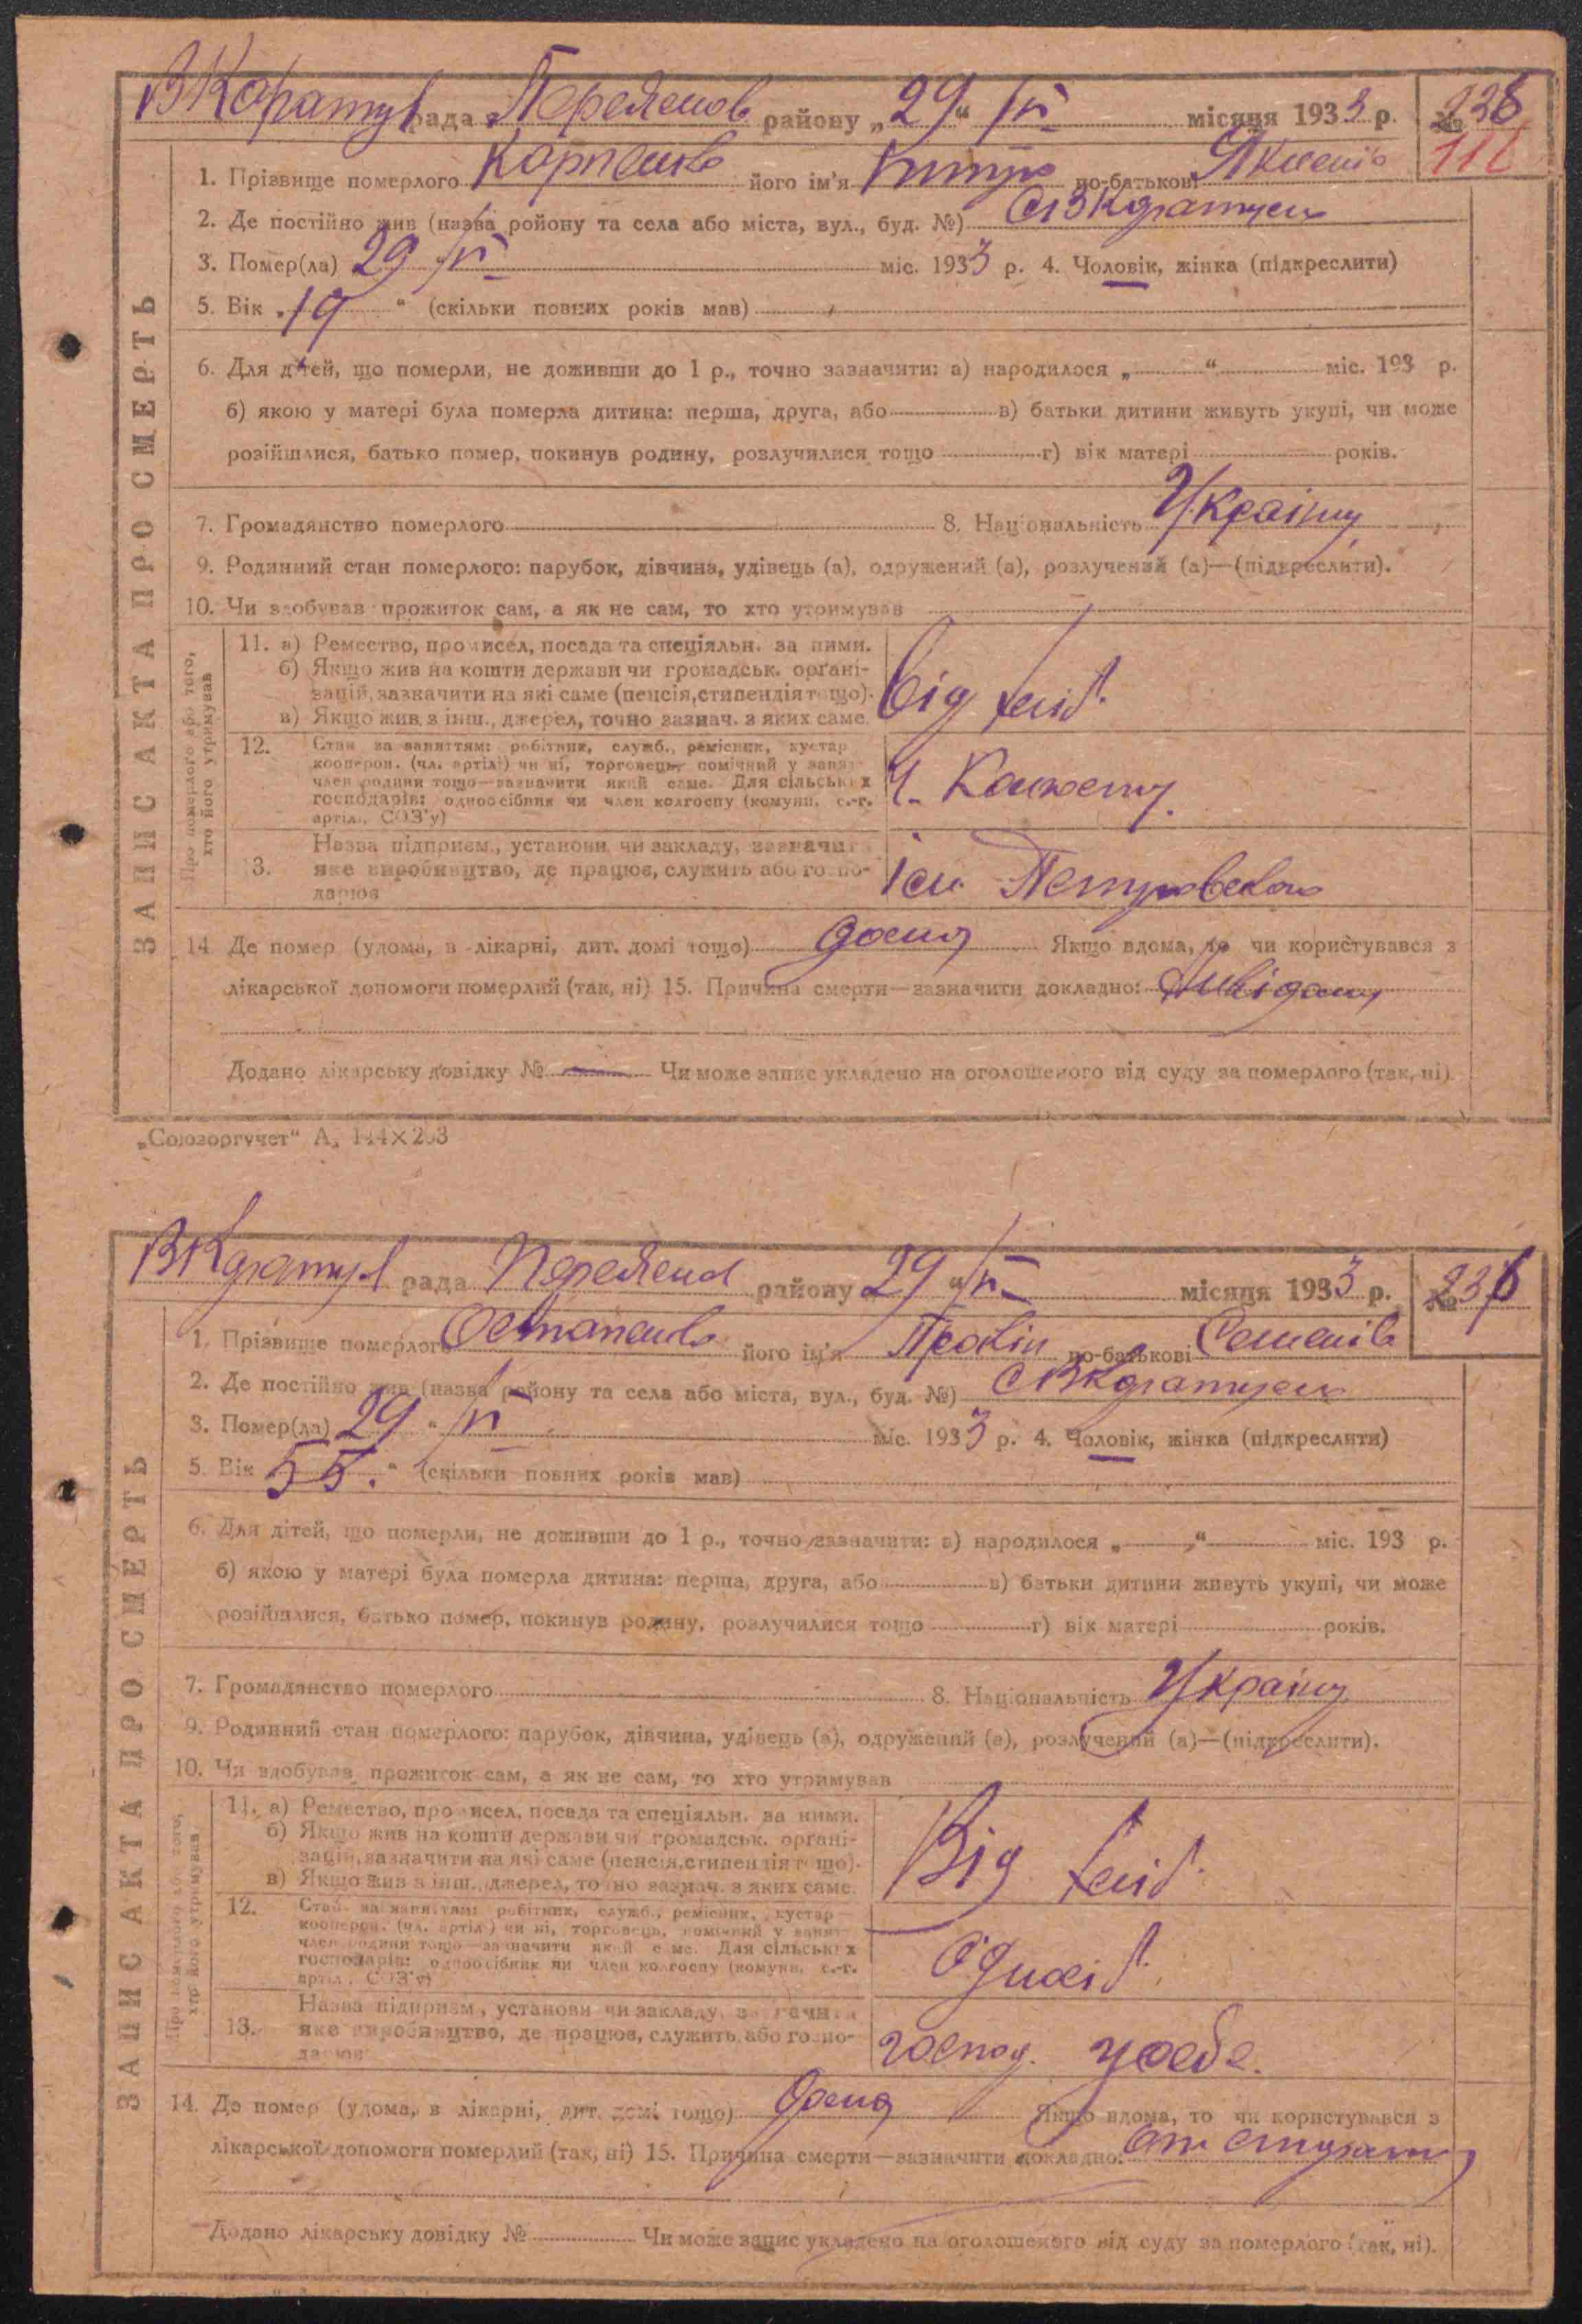 ВКаратул рада Переяслов району „29“ IV місяця 1933 р. № 238
112
1. Прізвище померлого Карпенко його ім'я по-батькові Якимів
2. Де постійно жив (назва ройону та села або міста, вул., буд. №) С ВКаратулн
3. Помер(ла) 29 „ IV міс. 1933 р. 4. Чоловік, жінка (підкреслити)
5. Вік „19“ (скільки повних років мав)
6. Для дітей, що померли, не доживши до 1 р., точно зазначити: а) народилося „ “ міс. 193 р.
б) якою у матері була померла дитина: перша, друга, або в) батьки дитини живуть укупі, чи може
розійшлися, батько помер, покинув родину, розлучилися тощо г) вік матері років.
7. Громадянство померлого 8. Національність Україну
9. Родинний стан померлого: парубок, дівчина, удівець (а), одружений (а), розлучений (а)—(підкреслити).
10. Чи здобував прожиток сам, а як не сам, то хто утримував
ЗАПИС АКТА ПРО СМЕРТЬ
Про померлого або того, хто його утримував
11. а) Ремество, промисел, посада та спеціяльн. за ними.
б) Якщо жив на кошти держави чи громадськ. орґані-
зацій, зазначити на які саме (пенсія, стипендія тощо).
в) Якщо жив з інш., джерел, точно зазнач. з яких саме.
від
12. Стан за заняттям: робітник, служб., ремісник, кустар
кооперов. (чл. артілі) чи ні, торговець, помічний у занят
член родини тощо—зазначити який саме. Для сільських
господарів: одноосібник чи член колгоспу (комуни, с.-г.
артіл., СОЗ'у)
Ч.
Назва підприєм., установи чи закладу, зазначит
13. яке виробництво, де працює, служить або госпо-
дарює
Ім Петровского
14. Де помер (удома, в лікарні, дит. домі тощо) дома Якщо вдома, то чи користувався з
лікарської допомоги померлий (так, ні) 15. Причина смерти—зазначити докладно:
Додано лікарську довідку № — Чи може запис укладено на оголошеного від суду за померлого (так, ні).
„Союзоргучет“ А, 144×203
ВКаратул рада Переяслов району 29 „ IV місяця 1933 р. № 236
1. Прізвище померлого Остапенко його ім'я по-батькові Семенів
2. Де постійно жив (назва району та села або міста, вул., буд. №) С ВКаратулн
3. Помер(ла) 29 „ IV міс. 1933 р. 4. Чоловік, жінка (підкреслити)
5. Вік 55. “ (скільки повних років мав)
6. Для дітей, що померли, не доживши до 1 р., точно зазначити: а) народилося „ “ міс. 193 р.
б) якою у матері була померла дитина: перша, друга, або в) батьки дитини живуть укупі, чи може
розійшлися, батько помер, покинув родину, розлучилися тощо г) вік матері років.
7. Громадянство померлого 8. Національність Україну
9. Родинний стан померлого: парубок, дівчина, удівець (а), одружений (а), розлучений (а)—(підкреслити).
10. Чи здобував прожиток сам, а як не сам, то хто утримував
ЗАПИС АКТА ПРО СМЕРТЬ
Про померлого або того, хто його утримував
11. а) Ремество, промисел, посада та спеціяльн. за ними.
б) Якщо жив на кошти держави чи громадськ. орґані-
зацій, зазначити на які саме (пенсія, стипендія тощо).
в) Якщо жив з інш., джерел, точно зазнач. з яких саме.
Від
12. Стан за заняттям: робітник, служб., ремісник, кустар
кооперов. (чл. артіл.) чи ні, торговець, помічний у занят
член родини тощо—зазначити який саме. Для сільських
господарів: одноосібник чи член колгоспу (комуни, с.-г.
артіл., СОЗ'у)
Назва підприєм., установи чи закладу, зазначити
13. яке виробництво, де працює, служить або госпо-
дарює
господ. у себе.
14. Де помер (удома, в лікарні, дит. домі тощо) дома Якщо вдома, то чи користувався з
лікарської допомоги померлий (так, ні) 15. Причина смерти—зазначити докладно: от
Додано лікарську довідку № Чи може запис укладено на оголошеного від суду за померлого (так, ні).